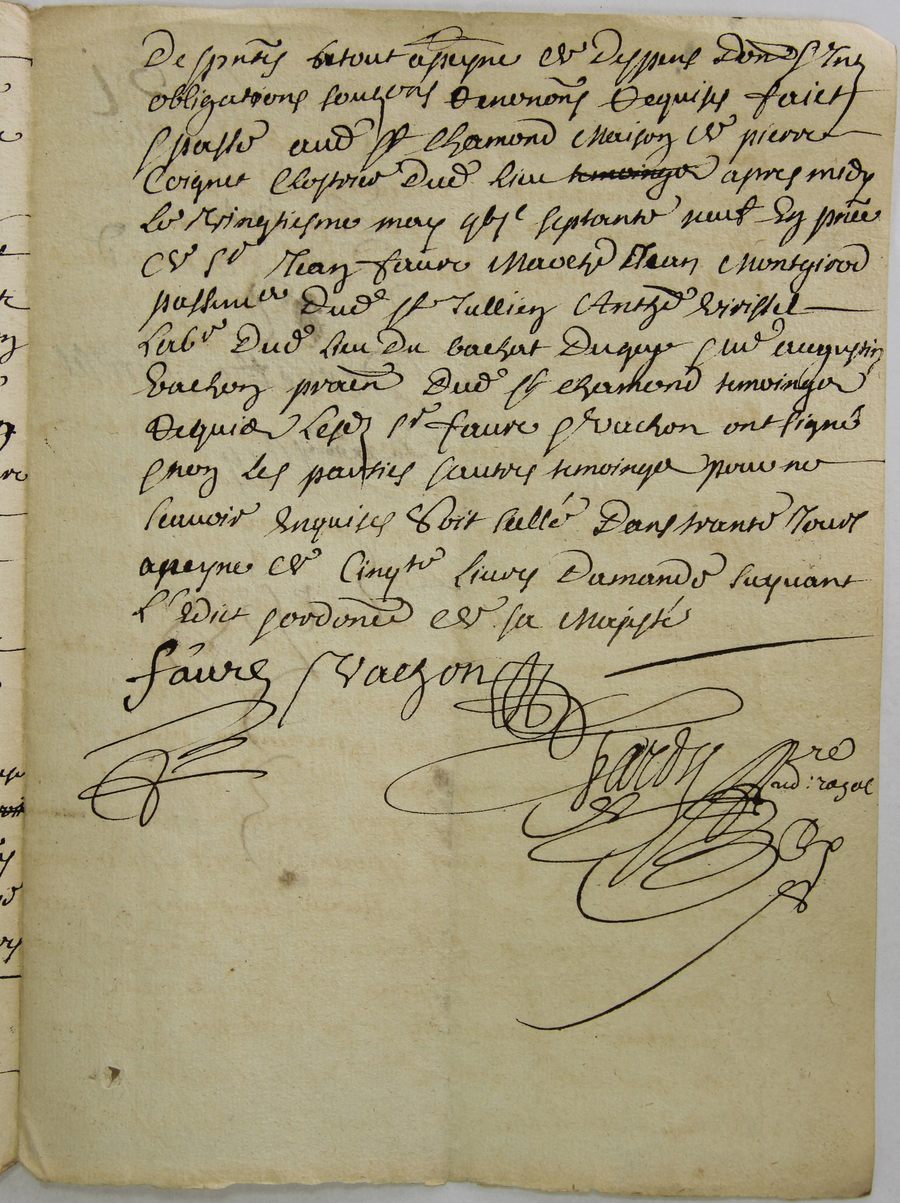 Desp̃ntes & tout apeyne de Despens Dom̃
obligations soubz̃ons Renonõns Requises faict
& passé aud St Chamond Maison de pierre
Coignet Clostrier Dud lieu temoings apres midy
le Vingtiesme may gbjC septante neuf En p̃nce
de Sr Jean faure March Jean Montgirod
passemr Dud St Jullien Anthe
Labr Dud lieu Du bachat & me augustin
Vachon pratn Dud St Chamond temoings
Requis Lesd Sr faure & Vachon ont signé
& non les parties & autres temoings pour ne
scavoir Enquises & soit scellé Dans trante Jours
apeyne de Cinqte livres Damande suyvant
l'Edict & ordonce de sa Majesté
faure Vachon
Hardy
nore
roial